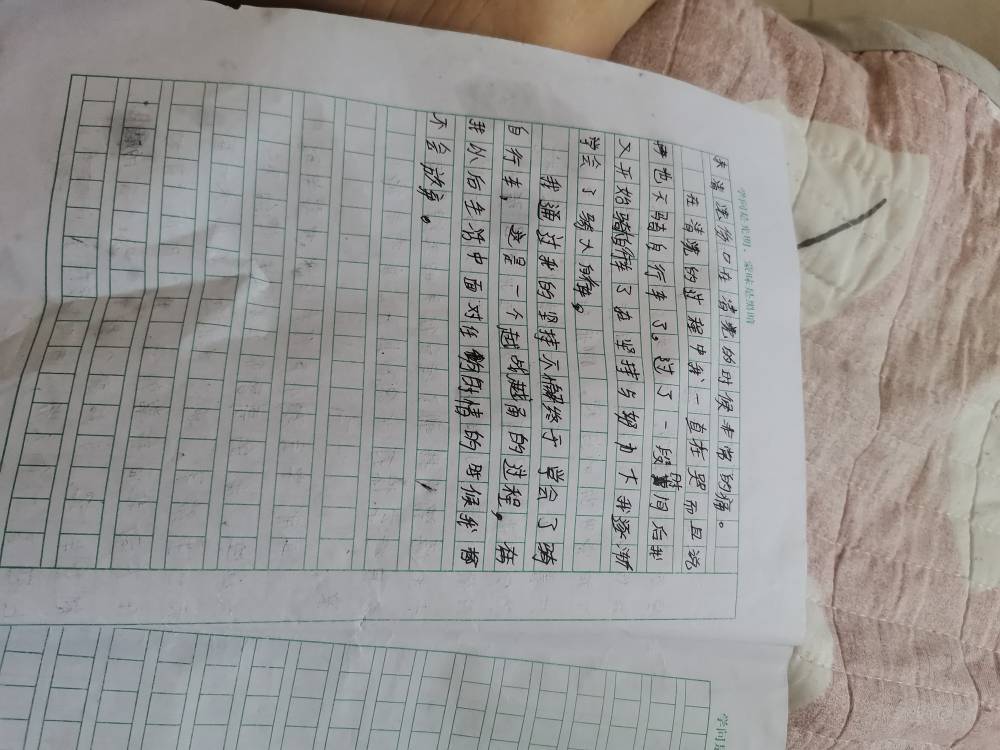 学问是光明，蒙昧是黑暗
来清洗伤口在清洗的时候非常的痛。
在清洗的过程中我一直在哭而且说
再也不骑自行车了。过了一段时间后我
又开始骑自行车了在坚持与努力下我逐渐
学会了骑大自行车。
我通过我的坚持不懈终于学会了骑
自行车，这是一个越战越勇的过程，在
我以后生活中面对任何事情的时候我都
不会放弃。
学问是